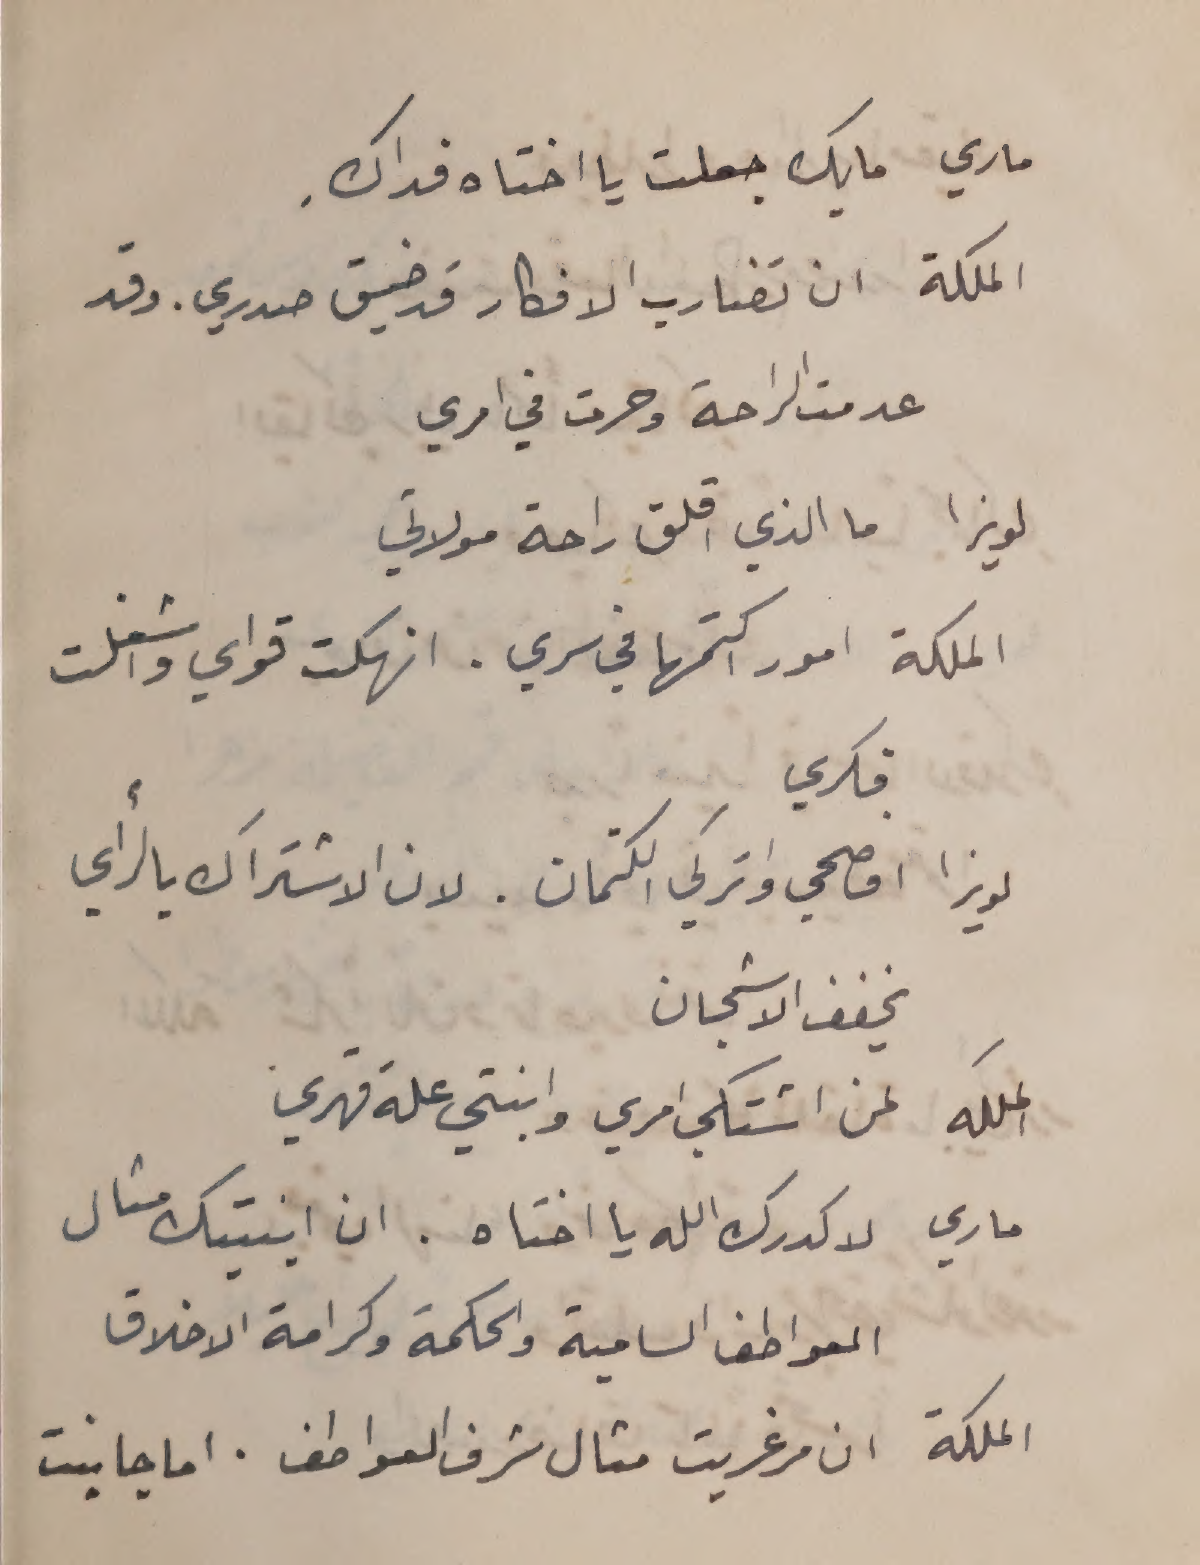 ماري مابك جعلت يا اختاه فداك.
الملكة ان تضارب الافكار قد ضيق صدري. وقد
عدمت الراحة وحرت في امري
لويزا ما الذي اقلق راحة مولاتي
الملكة امور اكتمها في سري. انهكت قواي واشغلت
فكري
لويزا افصحي واتركي الكتمان. لان الاشتراك بالرأي
يخفف الاشجان
الملكه لمن اشتكي امري وابنتي علة قهري
ماري لا كدرك الله يا اختاه. ان ابنتيك مثال
العواطف السامية والحكمة وكرامة الاخلاق
الملكة ان مرغريت مثال شرف العواطف. اما جانيت